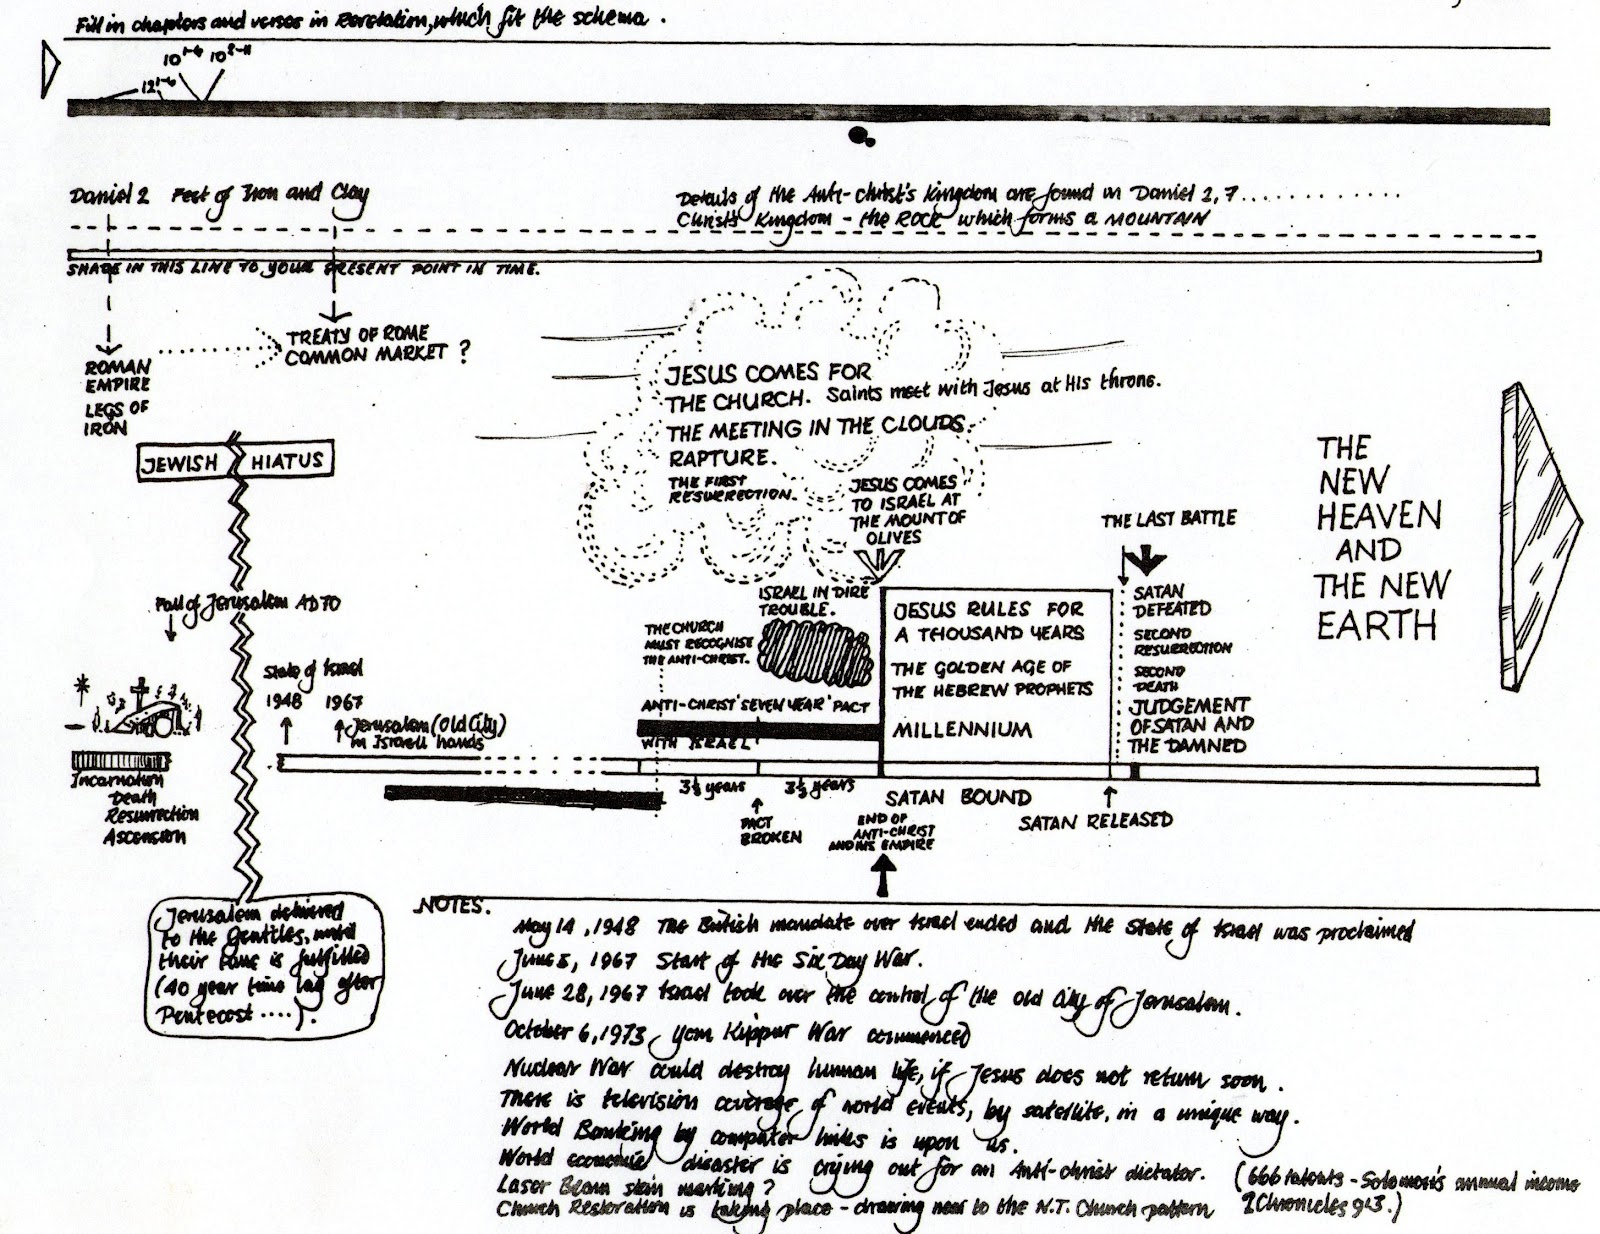 Fill in chapters and verses in Revelation, which fit the schema.
10¹⁻⁶ 10⁸⁻¹¹
12¹⁻⁶
Daniel 2 Feet of Iron and Clay
Details of the Anti-Christ's Kingdom are found in Daniel 2, 7..............
Christ's Kingdom - the ROCK which forms a MOUNTAIN
SHADE IN THIS LINE TO YOUR PRESENT POINT IN TIME.
TREATY OF ROME
COMMON MARKET ?
ROMAN
EMPIRE
LEGS OF
IRON
JEWISH HIATUS
JESUS COMES FOR
THE CHURCH. Saints meet with Jesus at His throne.
THE MEETING IN THE CLOUDS.
RAPTURE.
THE FIRST
RESURRECTION.
JESUS COMES
TO ISRAEL AT
THE MOUNT OF
OLIVES
THE LAST BATTLE
THE
NEW
HEAVEN
AND
THE NEW
EARTH
Fall of Jerusalem AD 70
State of Israel
1948 1967
Jerusalem (Old City)
in Israeli hands
Incarnation
Death
Resurrection
Ascension
THE CHURCH
MUST RECOGNISE
THE ANTI-CHRIST.
ISRAEL IN DIRE
TROUBLE.
ANTI-CHRIST 'SEVEN YEAR' PACT
WITH ISRAEL
3½ years 3½ years
PACT
BROKEN
END OF
ANTI-CHRIST
AND HIS EMPIRE
JESUS RULES FOR
A THOUSAND YEARS
THE GOLDEN AGE OF
THE HEBREW PROPHETS
MILLENNIUM
SATAN BOUND
SATAN RELEASED
SATAN
DEFEATED
SECOND
RESURRECTION
SECOND
DEATH
JUDGEMENT
OF SATAN AND
THE DAMNED
Jerusalem delivered
to the Gentiles, until
their time is fulfilled
(40 year time lag after
Pentecost ....).
NOTES.
May 14, 1948 The British mandate over Israel ended and the State of Israel was proclaimed
June 5, 1967 Start of the Six Day War.
June 28, 1967 Israel took over the control of the old City of Jerusalem.
October 6, 1973, Yom Kippur War commenced
Nuclear War could destroy human life, if Jesus does not return soon.
There is television coverage of world events, by satellite, in a unique way.
World Banking by computer links is upon us.
World economic disaster is crying out for an Anti-christ dictator. (666 talents - Solomon's annual income
Laser Beam skin marking? 2 Chronicles 9:13.)
Church Restoration is taking place - drawing near to the N.T. Church pattern